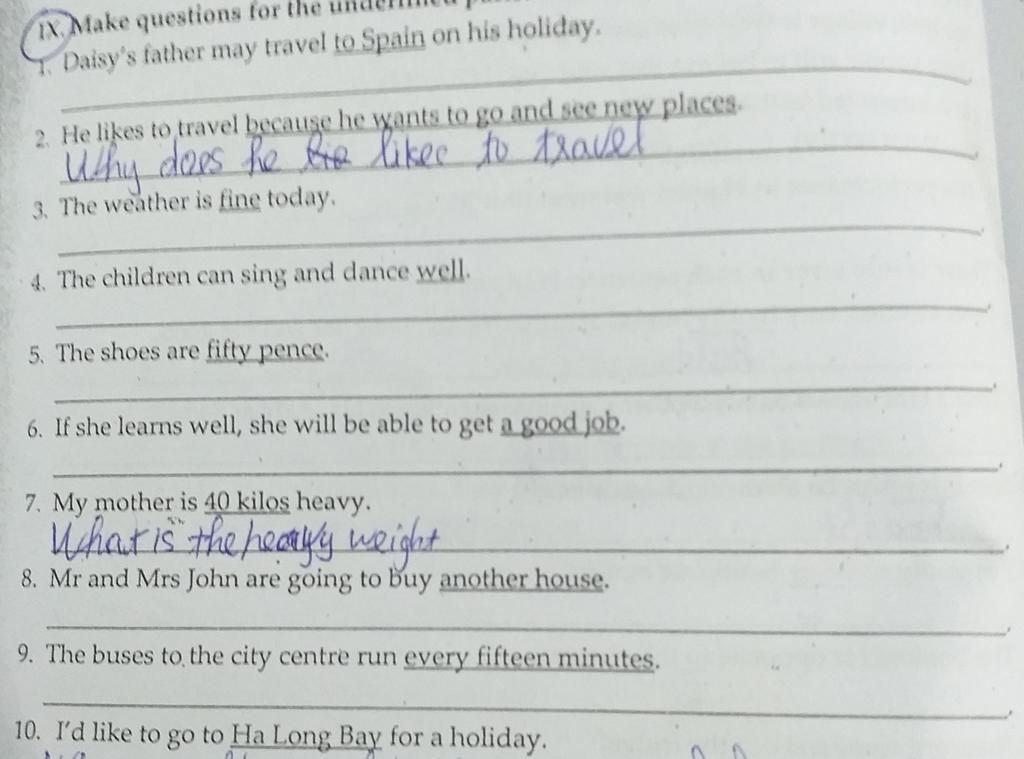 IX. Make questions for the underlined
1. Daisy's father may travel to Spain on his holiday.
2. He likes to travel because he wants to go and see new places.
Why does he likes to travel
3. The weather is fine today.
4. The children can sing and dance well.
5. The shoes are fifty pence.
6. If she learns well, she will be able to get a good job.
7. My mother is 40 kilos heavy.
What is the heavy weight
8. Mr and Mrs John are going to buy another house.
9. The buses to the city centre run every fifteen minutes.
10. I'd like to go to Ha Long Bay for a holiday.